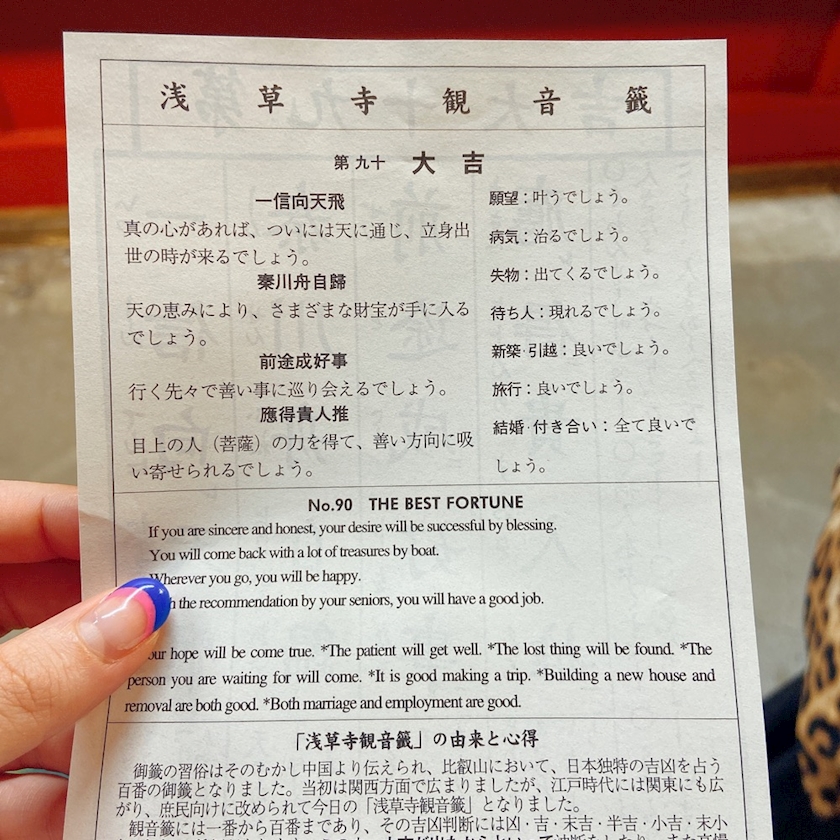 浅草寺観音籤
第九十 大吉
一信向天飛
真の心があれば、ついには天に通じ、立身出
世の時が来るでしょう。
秦川舟自歸
天の恵みにより、さまざまな財宝が手に入る
でしょう。
前途成好事
行く先々で善い事に巡り会えるでしょう。
應得貴人推
目上の人（菩薩）の力を得て、善い方向に吸
い寄せられるでしょう。
願望：叶うでしょう。
病気：治るでしょう。
失物：出てくるでしょう。
待ち人：現れるでしょう。
新築·引越：良いでしょう。
旅行：良いでしょう。
結婚·付き合い：全て良いで
しょう。
No.90 THE BEST FORTUNE
If you are sincere and honest, your desire will be successful by blessing.
You will come back with a lot of treasures by boat.
Wherever you go, you will be happy.
the recommendation by your seniors, you will have a good job.
hope will be come true. *The patient will get well. *The lost thing will be found. *The
person you are waiting for will come. *It is good making a trip. *Building a new house and
removal are both good. *Both marriage and employment are good.
「浅草寺観音籤」の由来と心得
御籤の習俗はそのむかし中国より伝えられ、比叡山において、日本独特の吉凶を占う
百番の御籤となりました。当初は関西方面で広まりましたが、江戸時代には関東にも広
がり、庶民向けに改められて今日の「浅草寺観音籤」となりました。
観音籤には一番から百番まであり、その吉凶判断には凶・吉・末吉・半吉・小吉・末小